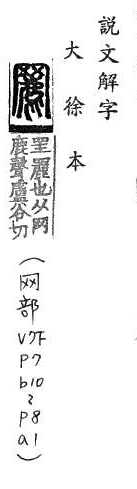 說文解字
大徐本
䍡
罜䍡也从网
鹿聲盧谷切
(网部 V7下 P7 b10 ~ P8 a1)